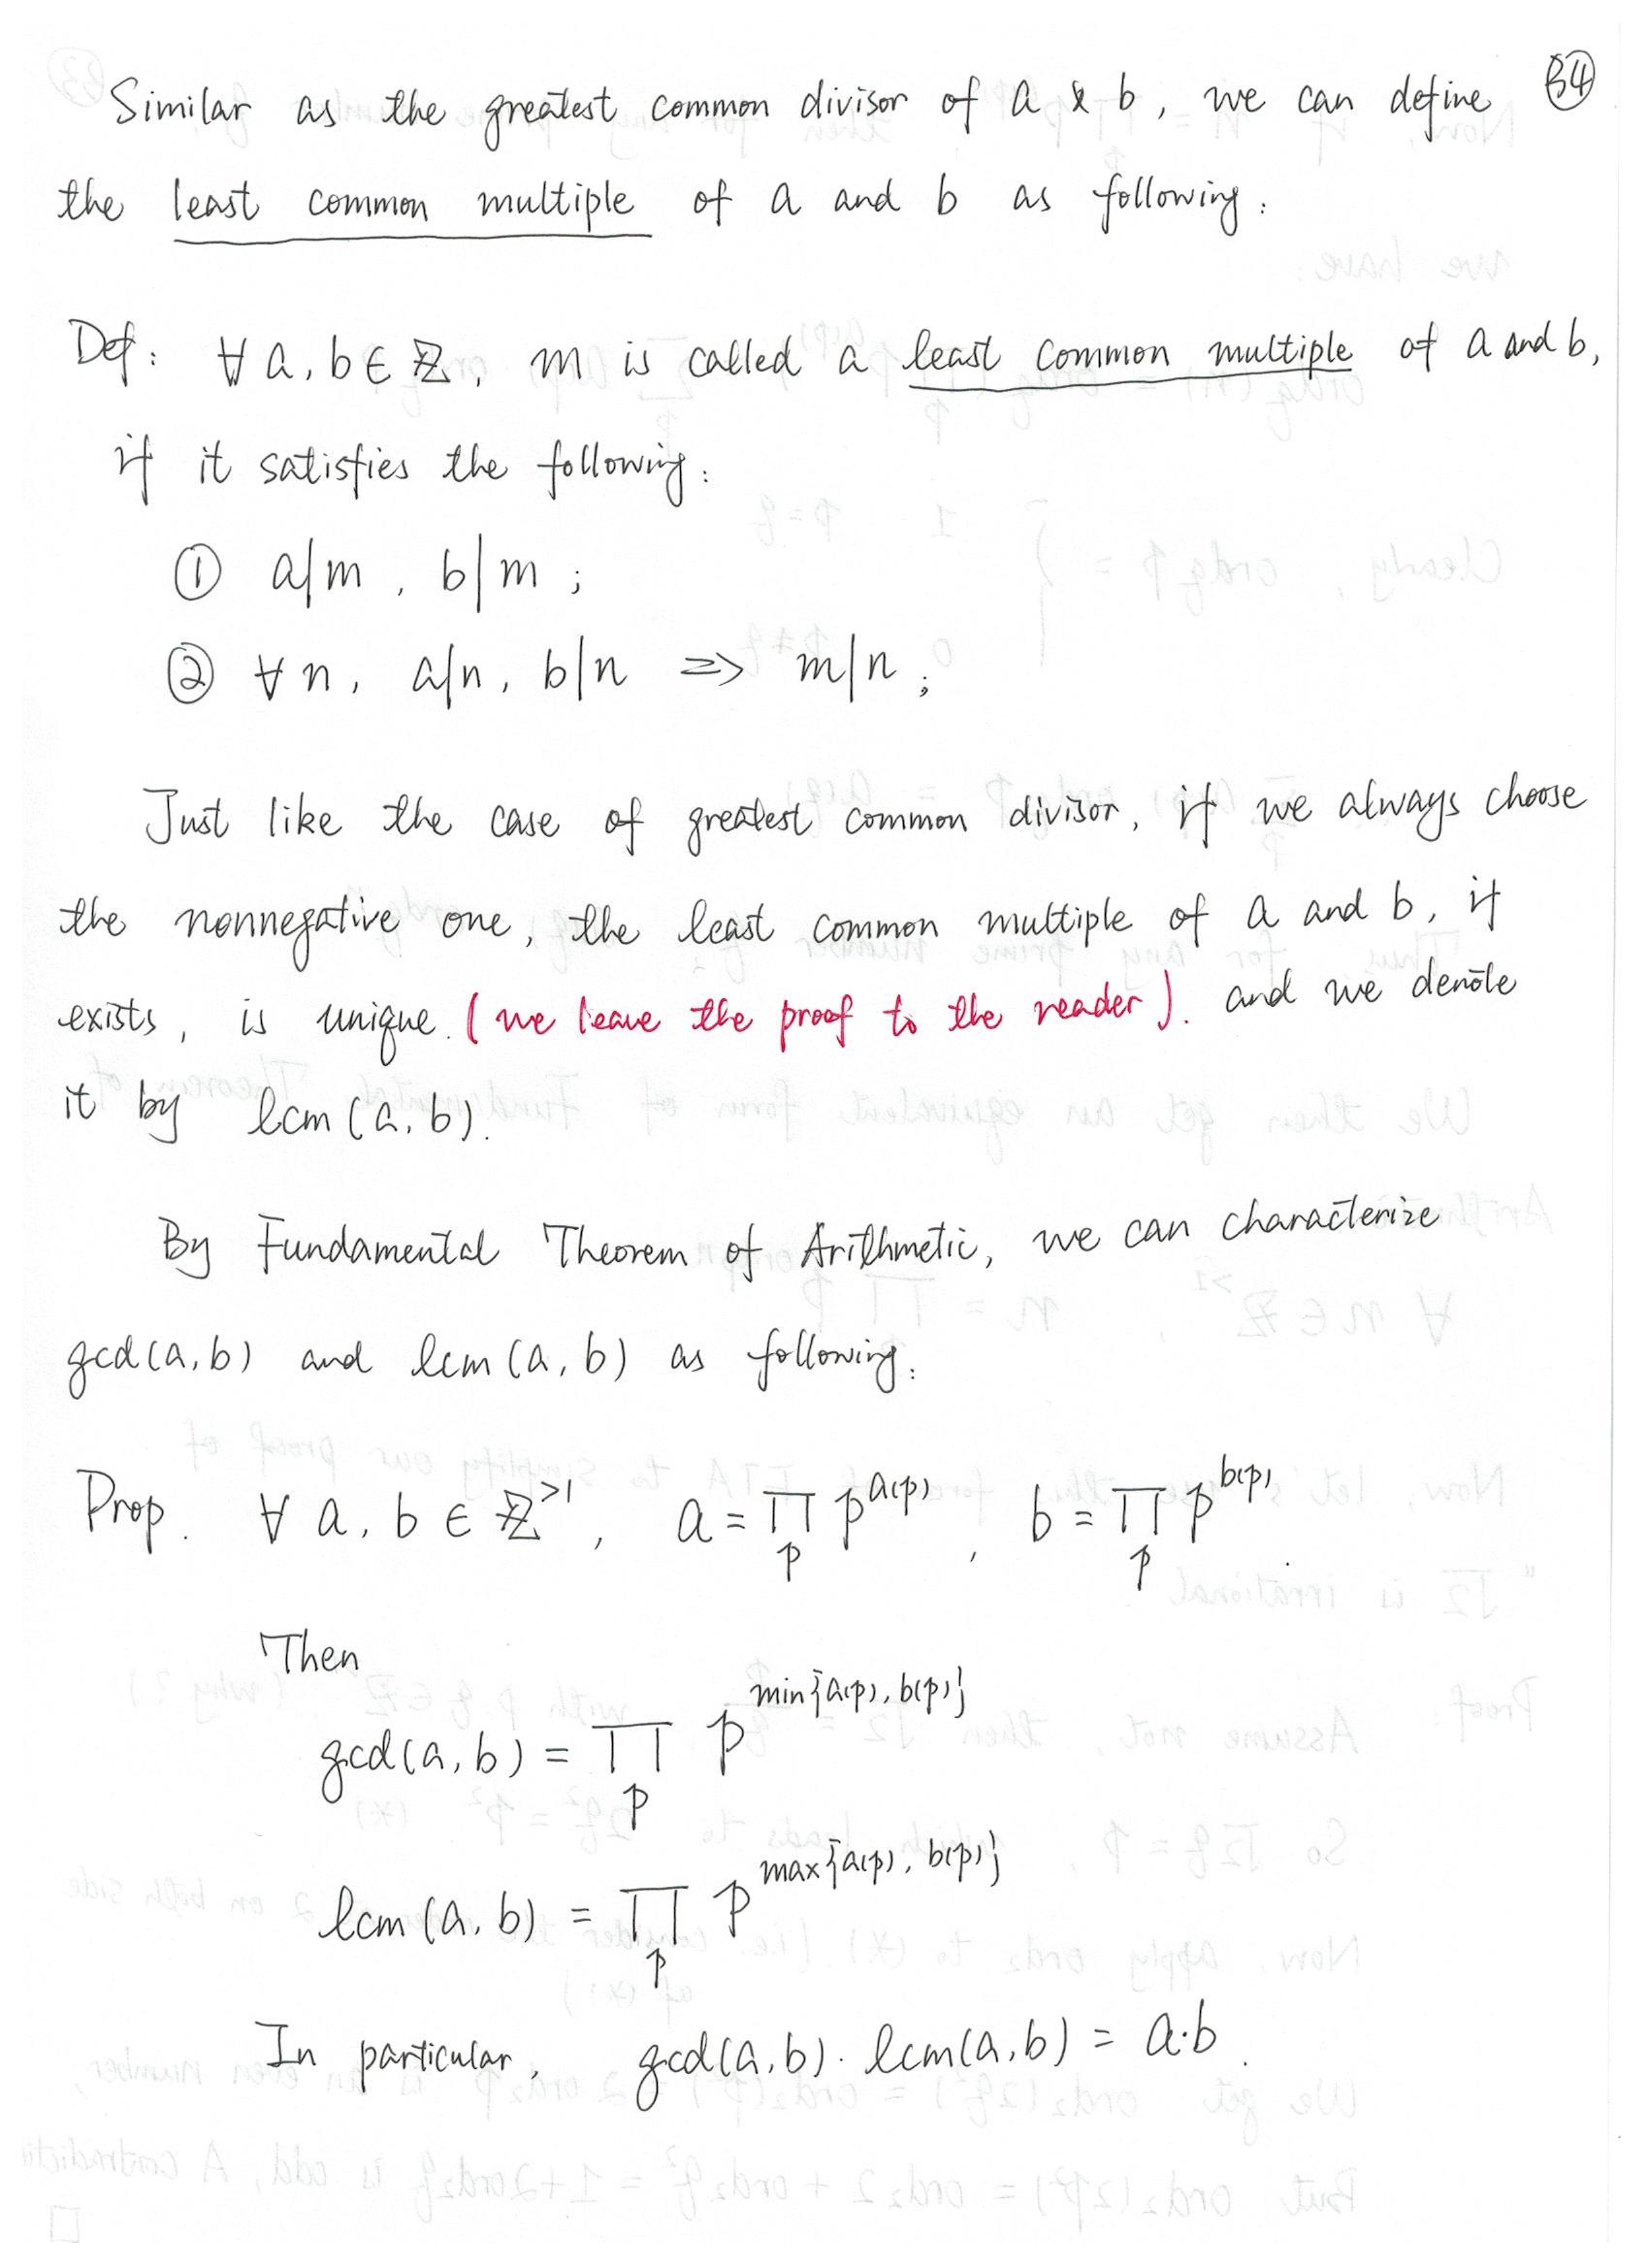 Similar as the greatest common divisor of a & b, we can define 34
the least common multiple of a and b as following:
Def: ∀ a, b ∈ ℤ, m is called a least common multiple of a and b,
if it satisfies the following:
① a|m, b|m;
② ∀ n, a|n, b|n => m|n;
Just like the case of greatest common divisor, if we always choose
the nonnegative one, the least common multiple of a and b, if
exists, is unique. (we leave the proof to the reader). and we denote
it by lcm(a, b).
By Fundamental Theorem of Arithmetic, we can characterize
gcd(a, b) and lcm(a, b) as following:
Prop. ∀ a, b ∈ ℤ^{>1}, a = ∏_p p^{a(p)}, b = ∏_p p^{b(p)}.
Then
gcd(a, b) = ∏_p p^{min{a(p), b(p)}}
lcm(a, b) = ∏_p p^{max{a(p), b(p)}}
In particular, gcd(a, b) · lcm(a, b) = a·b.